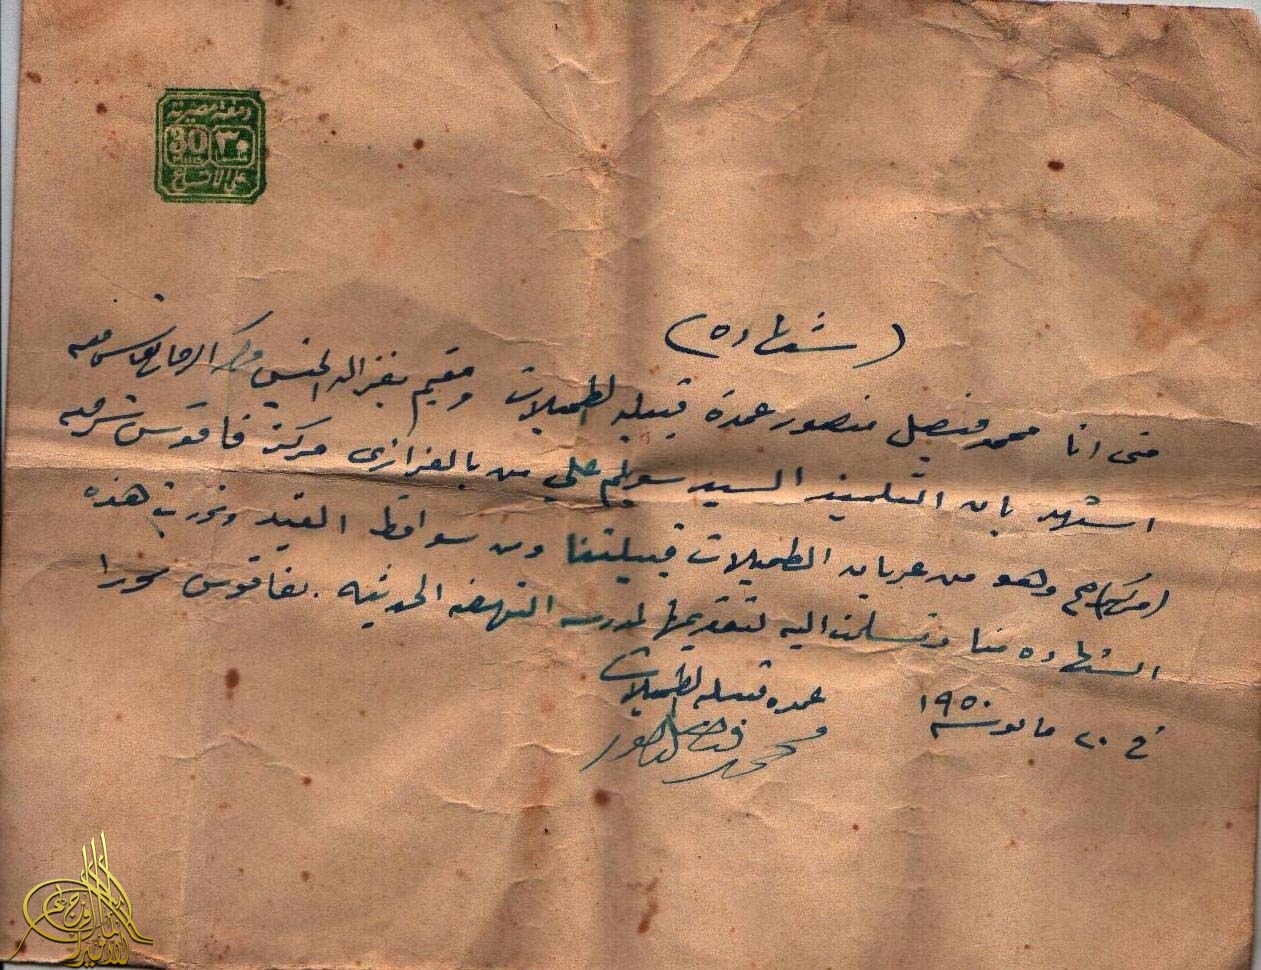 دمغة مصرية
30 ٣٠
MILLS مليما
على الاتساع
(شهاده)
منى انا محمد فيصل منصور عمدة قبيله الطميلات ومقيم بغزاله الخيس مركز فاقوس شرقيه
اشهد بان التلميذ السيد سويلم علي من بالغزازى مركز فاقوس شرقيه
وهو من عربان الطميلات قبيلتنا ومن سواقط القيد وتحررت هذه
الشهاده منا وتسلمت اليه لتقديمها لمدرسه النهضه الحديثه بفاقوس تحريرا
فى ٢٠ مايو سنة ١٩٥٠
عمده قبيله الطميلات
محمد فيصل منصور